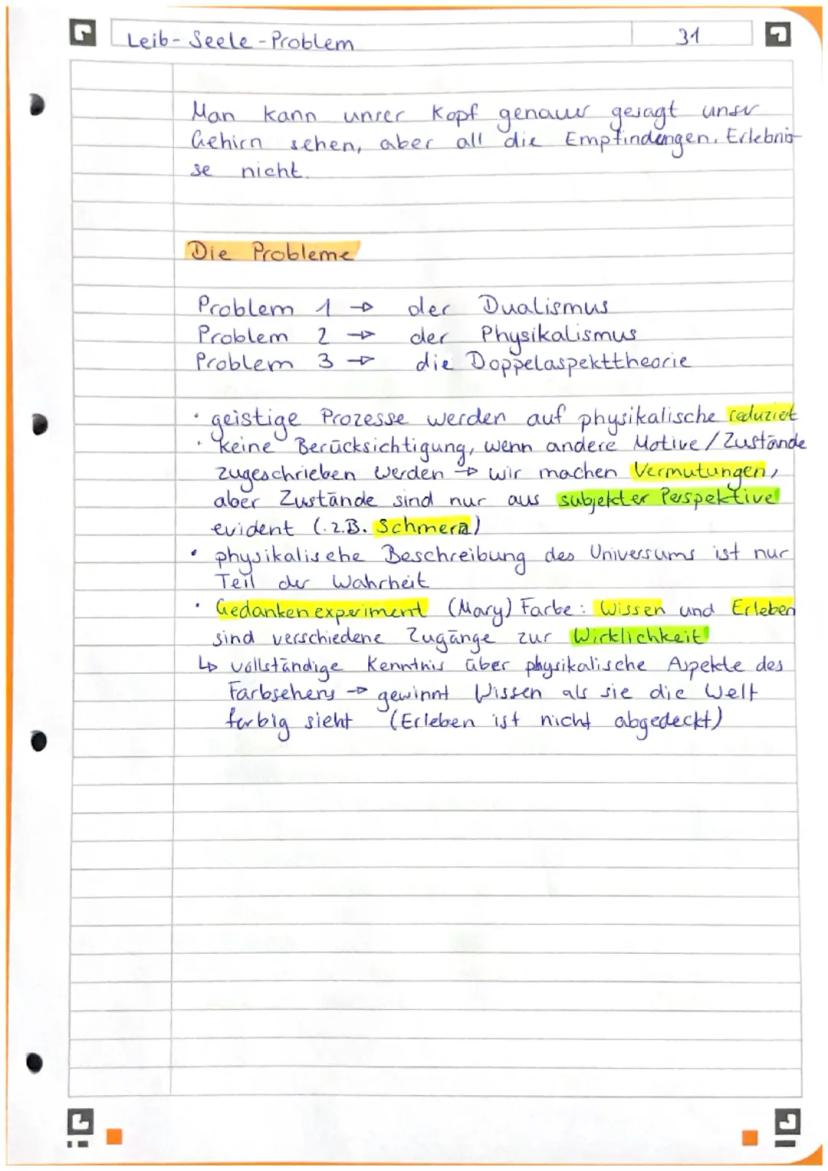 Leib-Seele-Problem
31
Man kann unser Kopf genauer gesagt unser
Gehirn sehen, aber all die Empfindungen, Erlebnis-
se nicht.
Die Probleme
Problem 1 → der Dualismus
Problem 2 → der Physikalismus
Problem 3 → die Doppelaspekttheorie
• geistige Prozesse werden auf physikalische reduziert
• keine Berücksichtigung, wenn andere Motive/Zustände
zugeschrieben werden → wir machen Vermutungen,
aber Zustände sind nur aus subjekter Perspektive
evident (z.B. Schmerz)
• physikalische Beschreibung des Universums ist nur
Teil der Wahrheit
• Gedankenexperiment (Mary) Farbe: Wissen und Erleben
sind verschiedene Zugänge zur Wirklichkeit
↳ vollständige Kenntnis über physikalische Aspekte des
Farbsehens → gewinnt Wissen als sie die Welt
farbig sieht (Erleben ist nicht abgedeckt)